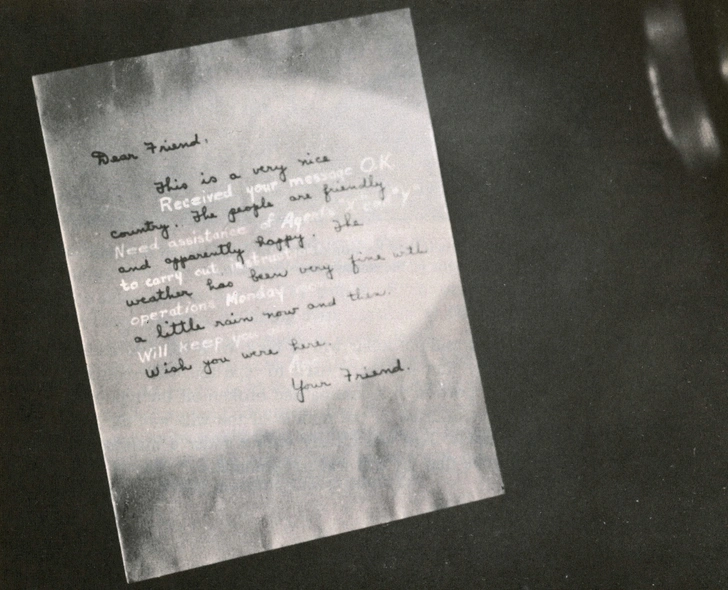 Dear Friend,
This is a very nice
Received your message O.K.
country. The people are friendly
Need assistance of Agents
and apparently happy. The
to carry out
weather has been very fine with
operations Monday
a little rain now and then.
Will keep you
Wish you were here.
Your Friend.